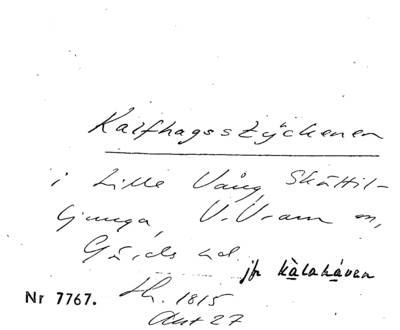 Kalfhagsstyckenen
i Lille Vång, Skättil-
ljunga, V. Vram sn,
Gärds hd.
jfr kàlahávan
Nr 7767. Lh. 1815
Akt 27